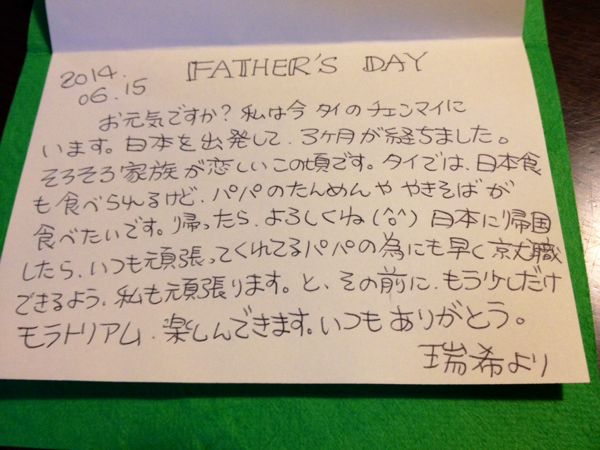 2014.
06.15
FATHER'S DAY
お元気ですか?私は今 タイのチェンマイに
います。日本を出発して、3ヶ月が経ちました。
そろそろ家族が恋しいこの頃です。タイでは、日本食
も食べられるけど、パパのたんめんや やきそばが
食べたいです。帰ったら、よろしくね(^o^) 日本に帰国
したら、いつも頑張ってくれてるパパの為にも早く就職
できるよう、私も頑張ります。と、その前に、もう少しだけ
モラトリアム、楽しんできます。いつもありがとう。
瑞希より